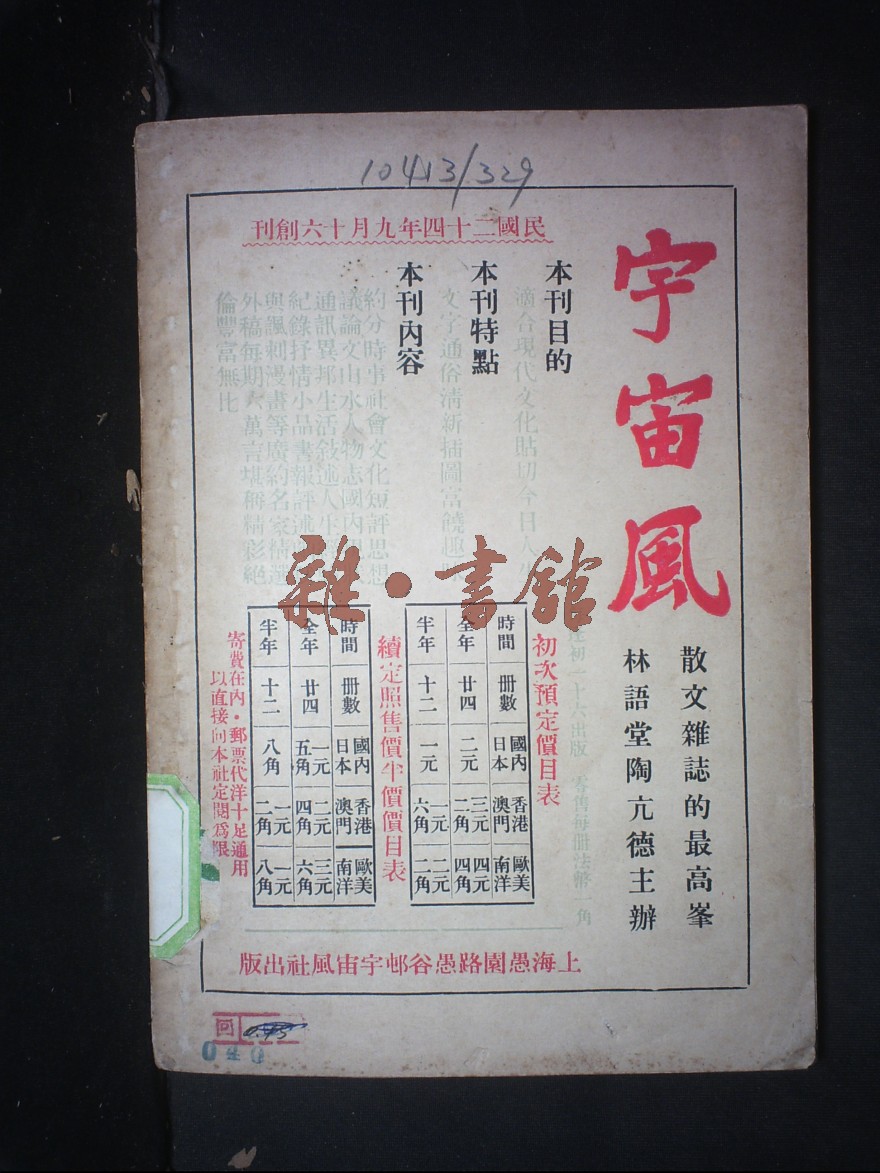 10413/329
宇宙風
散文雜誌的最高峯
林語堂陶亢德主辦
民國二十四年九月十六創刊
本刊目的
適合現代文化貼切今日人
本刊特點
文字通俗清新插圖富饒趣
本刊內容
約分時事社會文化短評思想
議論文山水人物志國內
通訊異邦生活敍述人生
紀錄抒情小品書報評述
與諷刺漫畫等廣約名家精選
外稿每期六萬言堪稱精彩絕
倫豐富無比
雜·書館
初一十六出版 零售每冊法幣一角
初次預定價目表
時間 冊數 國內日本 香港澳門 歐美南洋
全年 廿四 二元 三元二角 四元四角
半年 十二 一元 一元六角 二元二角
續定照售價半價價目表
時間 冊數 國內日本 香港澳門 歐美南洋
全年 廿四 一元五角 二元四角 三元六角
半年 十二 八角 一元二角 一元八角
寄費在內·郵票代洋十足通用
以直接向本社定閱爲限
上海愚園路愚谷邨宇宙風社出版
回
0.45